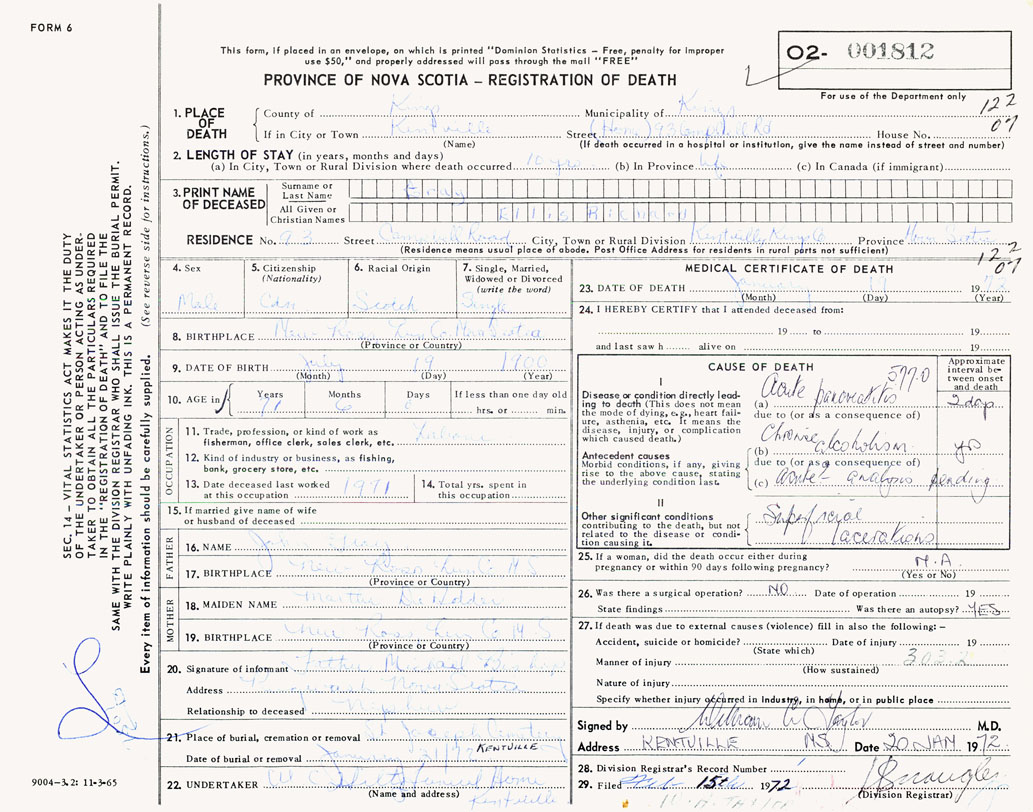 FORM 6
This form, if placed in an envelope, on which is printed "Dominion Statistics – Free, penalty for improper
use $50," and properly addressed will pass through the mail "FREE"
O2- 001812
For use of the Department only
PROVINCE OF NOVA SCOTIA – REGISTRATION OF DEATH
122
07
1. PLACE OF DEATH
County of Kings Municipality of Kings
If in City or Town Kentville Street (Home) 93 Rd House No.
(Name) (If death occurred in a hospital or institution, give the name instead of street and number)
2. LENGTH OF STAY (in years, months and days)
(a) In City, Town or Rural Division where death occurred 10 yrs (b) In Province life (c) In Canada (if immigrant)
3. PRINT NAME OF DECEASED
Surname or Last Name
All Given or Christian Names Ellis
RESIDENCE No. 93 Street Road City, Town or Rural Division Kentville, Kings Co. Province Nova Scotia
(Residence means usual place of abode. Post Office Address for residents in rural parts not sufficient)
122
07
4. Sex
Male
5. Citizenship
(Nationality)
Cdn
6. Racial Origin
Scotch
7. Single, Married,
Widowed or Divorced
(write the word)
Single
8. BIRTHPLACE New Ross Nova Scotia
(Province or Country)
9. DATE OF BIRTH July 19 1900
(Month) (Day) (Year)
10. AGE in
Years 71 Months 6 Days If less than one day old
hrs. or min.
OCCUPATION
11. Trade, profession, or kind of work as
fisherman, office clerk, sales clerk, etc.
12. Kind of industry or business, as fishing,
bank, grocery store, etc.
13. Date deceased last worked
at this occupation 1971
14. Total yrs. spent in
this occupation
15. If married give name of wife
or husband of deceased
FATHER
16. NAME John
17. BIRTHPLACE New Ross Lun. Co. N.S.
(Province or Country)
MOTHER
18. MAIDEN NAME Martha
19. BIRTHPLACE New Ross Lun Co N.S
(Province or Country)
20. Signature of informant Michael
Address Nova Scotia
Relationship to deceased
21. Place of burial, cremation or removal St. Joseph
KENTVILLE
Date of burial or removal January 21/72
22. UNDERTAKER Funeral Home
(Name and address) Kentville
MEDICAL CERTIFICATE OF DEATH
23. DATE OF DEATH January 19 1972
(Month) (Day) (Year)
24. I HEREBY CERTIFY that I attended deceased from:
19 to 19
and last saw h alive on 19
CAUSE OF DEATH
577.0
Approximate
interval be-
tween onset
and death
I
Disease or condition directly lead-
ing to death (This does not mean
the mode of dying, e.g., heart fail-
ure, asthenia, etc. It means the
disease, injury, or complication
which caused death.)
(a) Acute pancreatitis 2 days
due to (or as a consequence of)
Antecedent causes
Morbid conditions, if any, giving
rise to the above cause, stating
the underlying condition last.
(b) Chronic alcoholism yrs
due to (or as a consequence of)
(c) acute - analysis pending
II
Other significant conditions
contributing to the death, but not
related to the disease or condi-
tion causing it.
Superficial
lacerations
25. If a woman, did the death occur either during
pregnancy or within 90 days following pregnancy? N.A
(Yes or No)
26. Was there a surgical operation? NO Date of operation 19
State findings Was there an autopsy? YES
27. If death was due to external causes (violence) fill in also the following: –
Accident, suicide or homicide? Date of injury 19
(State which)
Manner of injury 303.2
(How sustained)
Nature of injury
Specify whether injury occurred in industry, in home, or in public place
Signed by William W Taylor M.D.
Address KENTVILLE NS Date 20 JAN 1972
28. Division Registrar's Record Number
29. Filed Feb 15th 1972
(Division Registrar)
SEC. 14 – VITAL STATISTICS ACT MAKES IT THE DUTY
OF THE UNDERTAKER OR PERSON ACTING AS UNDER-
TAKER TO OBTAIN ALL THE PARTICULARS REQUIRED
IN THE "REGISTRATION OF DEATH" AND TO FILE THE
SAME WITH THE DIVISION REGISTRAR WHO SHALL ISSUE THE BURIAL PERMIT.
WRITE PLAINLY WITH UNFADING INK. THIS IS A PERMANENT RECORD.
Every item of information should be carefully supplied. (See reverse side for instructions.)
9004-3.2: 11-3-65